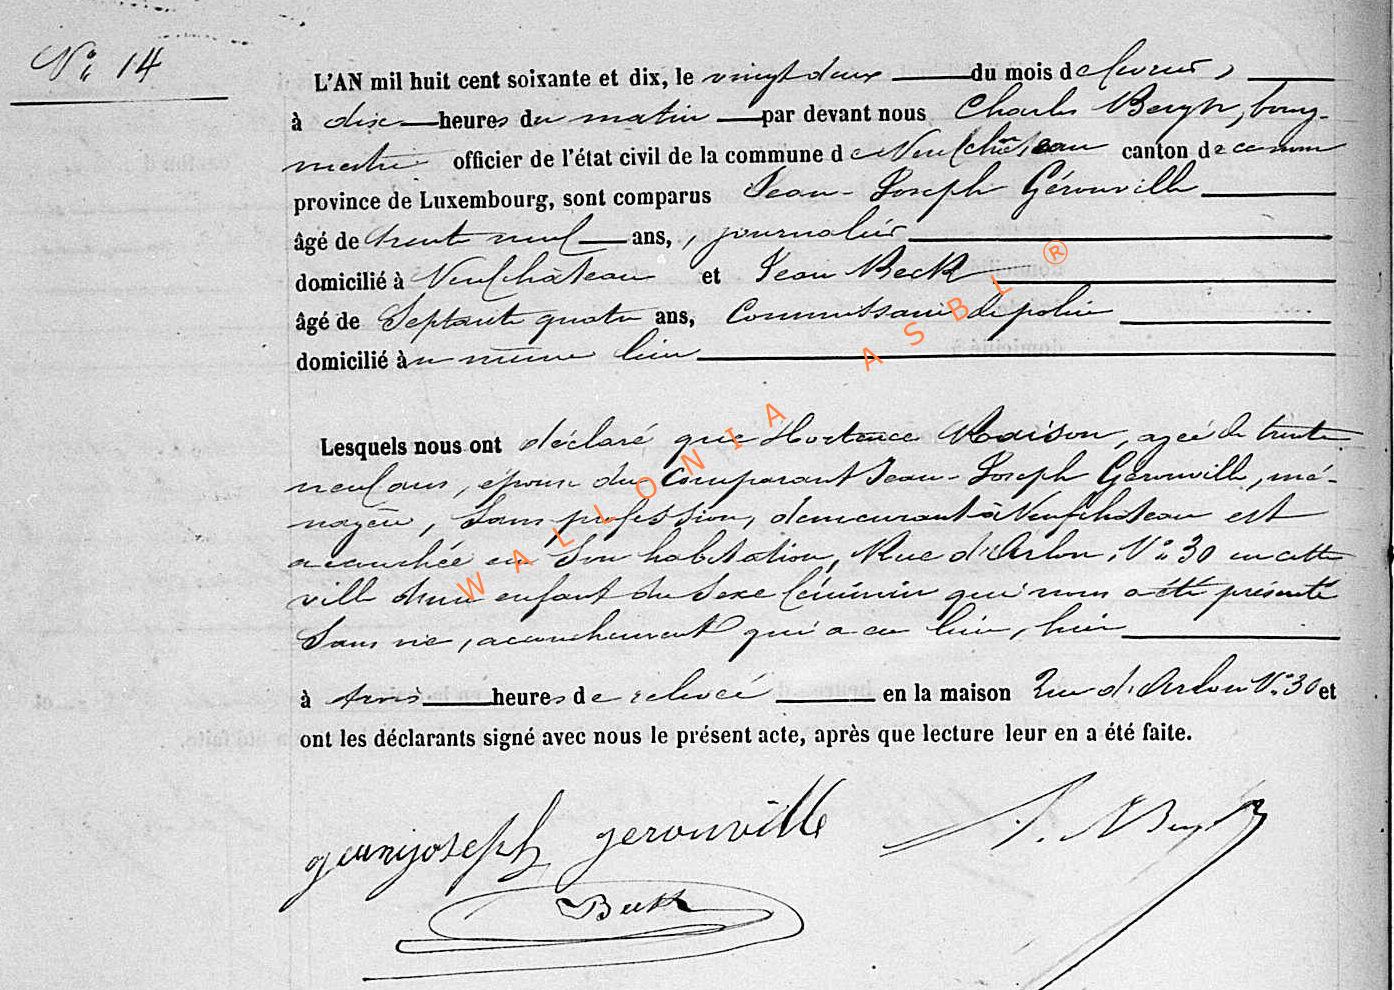 N° 14
L'AN mil huit cent soixante et dix, le vingt deux du mois de fevrier,
à dix heures du matin par devant nous Charles Bergh, bourg-
mestre officier de l'état civil de la commune de Neufchâteau canton de comm
province de Luxembourg, sont comparus Jean-Joseph Gérouville
âgé de trente neuf ans, journalier
domicilié à Neufchâteau et Jean Beck
âgé de Septante quatre ans, Commissaire de police
domicilié au même lieu
Lesquels nous ont déclaré que Hortence Maison, agée de trente
neuf ans, épouse du Comparant Jean-Joseph Gérouville, mé-
nagère, Sans profession, demeurant à Neufchateau est
accouchée en Son habitation, Rue d'Arlon, N° 30 en cette
ville d'un enfant du Sexe féminin qui nous a été présenté
Sans vie, accouchement qui a eu lieu, hier
à trois heures de relevée en la maison Rue d'Arlon N° 30 et
ont les déclarants signé avec nous le présent acte, après que lecture leur en a été faite.
jeanjoseph gerouville
Beck
WALLONIA ASBL ®